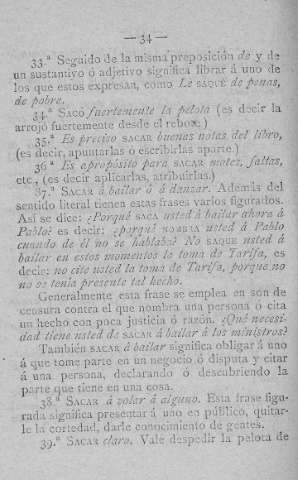 — 34 —
33.ª Seguido de la misma preposición de y de
un sustantivo ó adjetivo significa librar á uno de
los que estos expresan, como LE SAQUÉ de penas,
de pobre.
34.ª SACÓ fuertemente la pelota (es decir la
arrojó fuertemente desde el rebote.)
35.ª Es preciso SACAR buenas notas del libro,
(es decir, apuntarlas ó escribirlas aparte.)
36.ª Es apropósito para SACAR motes, faltas,
etc., (es decir aplicarlas, atribuirlas.)
37.ª SACAR á bailar ó á danzar. Además del
sentido literal tienen estas frases varios figurados.
Así se dice: ¿Porqué SACA usted á bailar ahora á
Pablo? es decir: ¿porqué NOMBRA usted á Pablo
cuando de él no se hablaba? NO SAQUE usted á
bailar en estos momentos la toma de Tarifa, es
decir: no cite usted la toma de Tarifa, porque no
no se tenía presente tal hecho.
Generalmente esta frase se emplea en són de
censura contra el que nombra una persona ó cita
un hecho con poca justicia ó razón. ¿Qué necesi-
dad tiene usted de SACAR á bailar á los ministros?
También SACAR á bailar significa obligar á uno
á que tome parte en un negocio ó disputa y citar
á una persona, declarando ó descubriendo la
parte que tiene en una cosa.
38.ª SACAR á volar á alguno. Esta frase figu-
rada significa presentar á uno en público, quitar-
le la cortedad, darle conocimiento de gentes.
39.ª SACAR claro. Vale despedir la pelota de